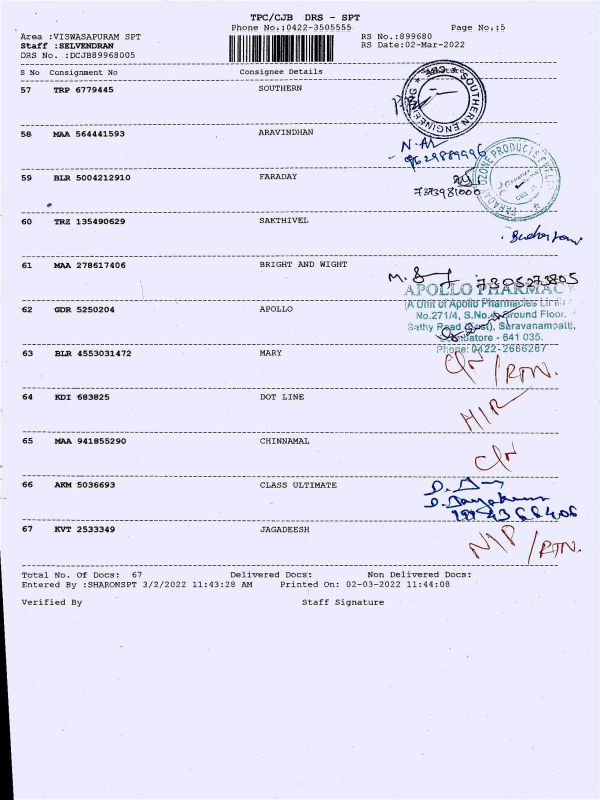 TPC/CJB DRS - SPT
Phone No.:0422-3505555 Page No.:5
Area :VISWASAPURAM SPT RS No.:899680
Staff :SELVENDRAN RS Date:02-Mar-2022
DRS No. :DCJB89968005
S No Consignment No Consignee Details
57 TRP 6779445 SOUTHERN
SOUTHERN ENGINEERING
58 MAA 564441593 ARAVINDHAN
9629889996
59 BLR 5004212910 FARADAY
FARADAY OZONE PRODUCTS
7373981000
60 TRZ 135490629 SAKTHIVEL
61 MAA 278617406 BRIGHT AND WIGHT
7305273805
APOLLO PHARMACY
(A Unit of Apollo Pharmacies
62 GDR 5250204 APOLLO
No.271/4, S.No. Ground Floor,
Sathy Road (East), Saravanampatti,
Coimbatore - 641 035.
Phone: 0422-2666267
63 BLR 4553031472 MARY
/RTN.
64 KDI 683825 DOT LINE
65 MAA 941855290 CHINNAMAL
66 AKM 5036693 CLASS ULTIMATE
67 KVT 2533349 JAGADEESH
N/P /RTN.
Total No. Of Docs: 67 Delivered Docs: Non Delivered Docs:
Entered By :SHARONSPT 3/2/2022 11:43:28 AM Printed On: 02-03-2022 11:44:08
Verified By Staff Signature